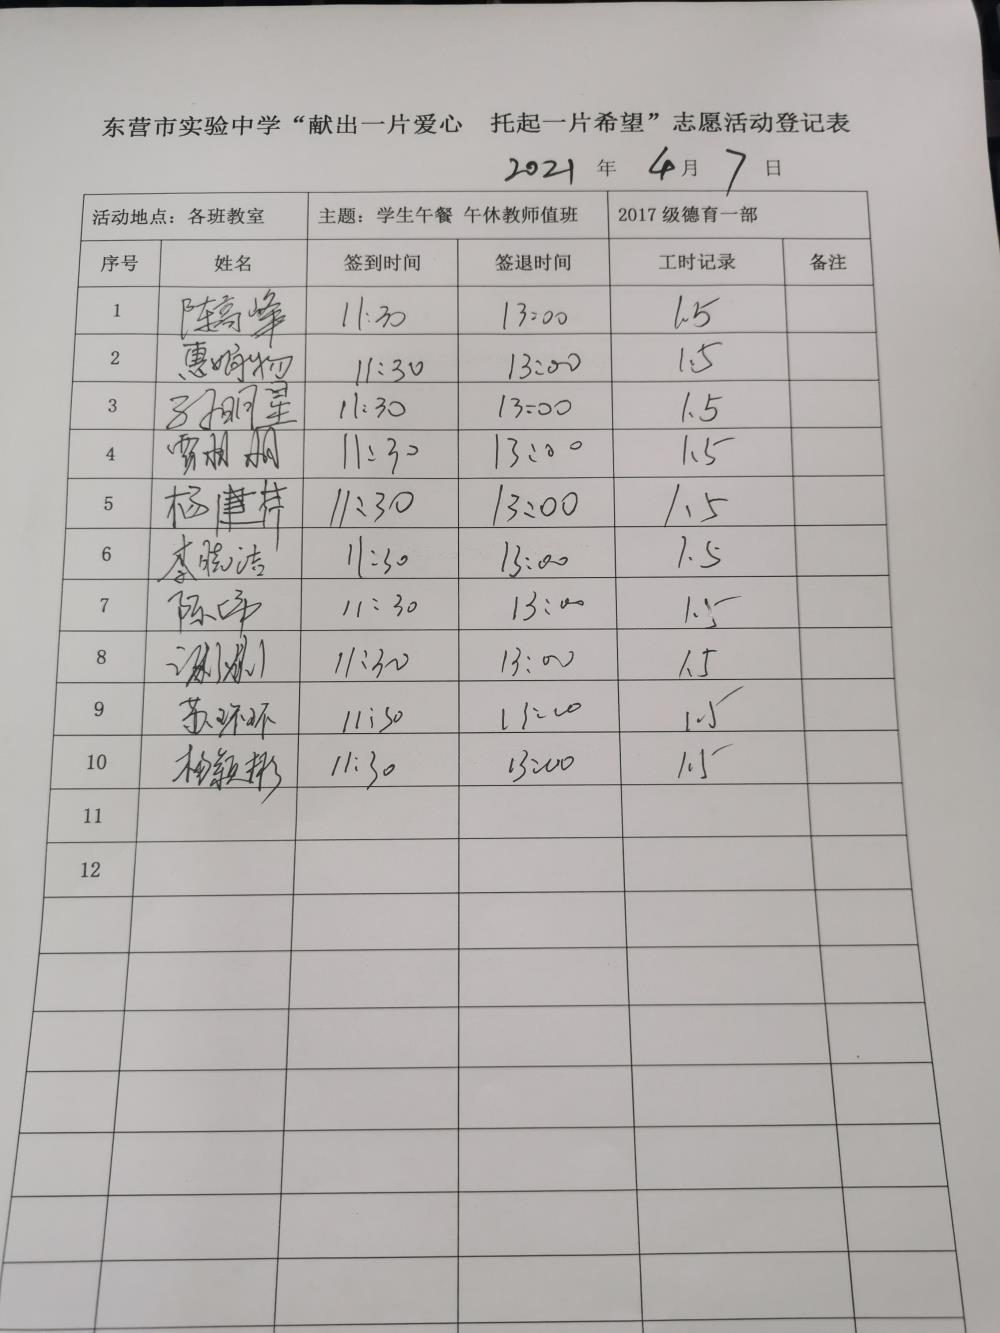 东营市实验中学“献出一片爱心 托起一片希望”志愿活动登记表
2021 年 4 月 7 日
活动地点：各班教室 主题：学生午餐 午休教师值班 2017 级德育一部
序号 姓名 签到时间 签退时间 工时记录 备注
1 陈高峰 11:30 13:00 1.5
2 惠 11:30 13:00 1.5
3 孙明星 11:30 13:00 1.5
4 贾朋朋 11:30 13:00 1.5
5 杨建 11:30 13:00 1.5
6 李晓洁 11:30 13:00 1.5
7 陈 11:30 13:00 1.5
8 11:30 13:00 1.5
9 苏环环 11:30 13:00 1.5
10 杨颖彬 11:30 13:00 1.5
11
12